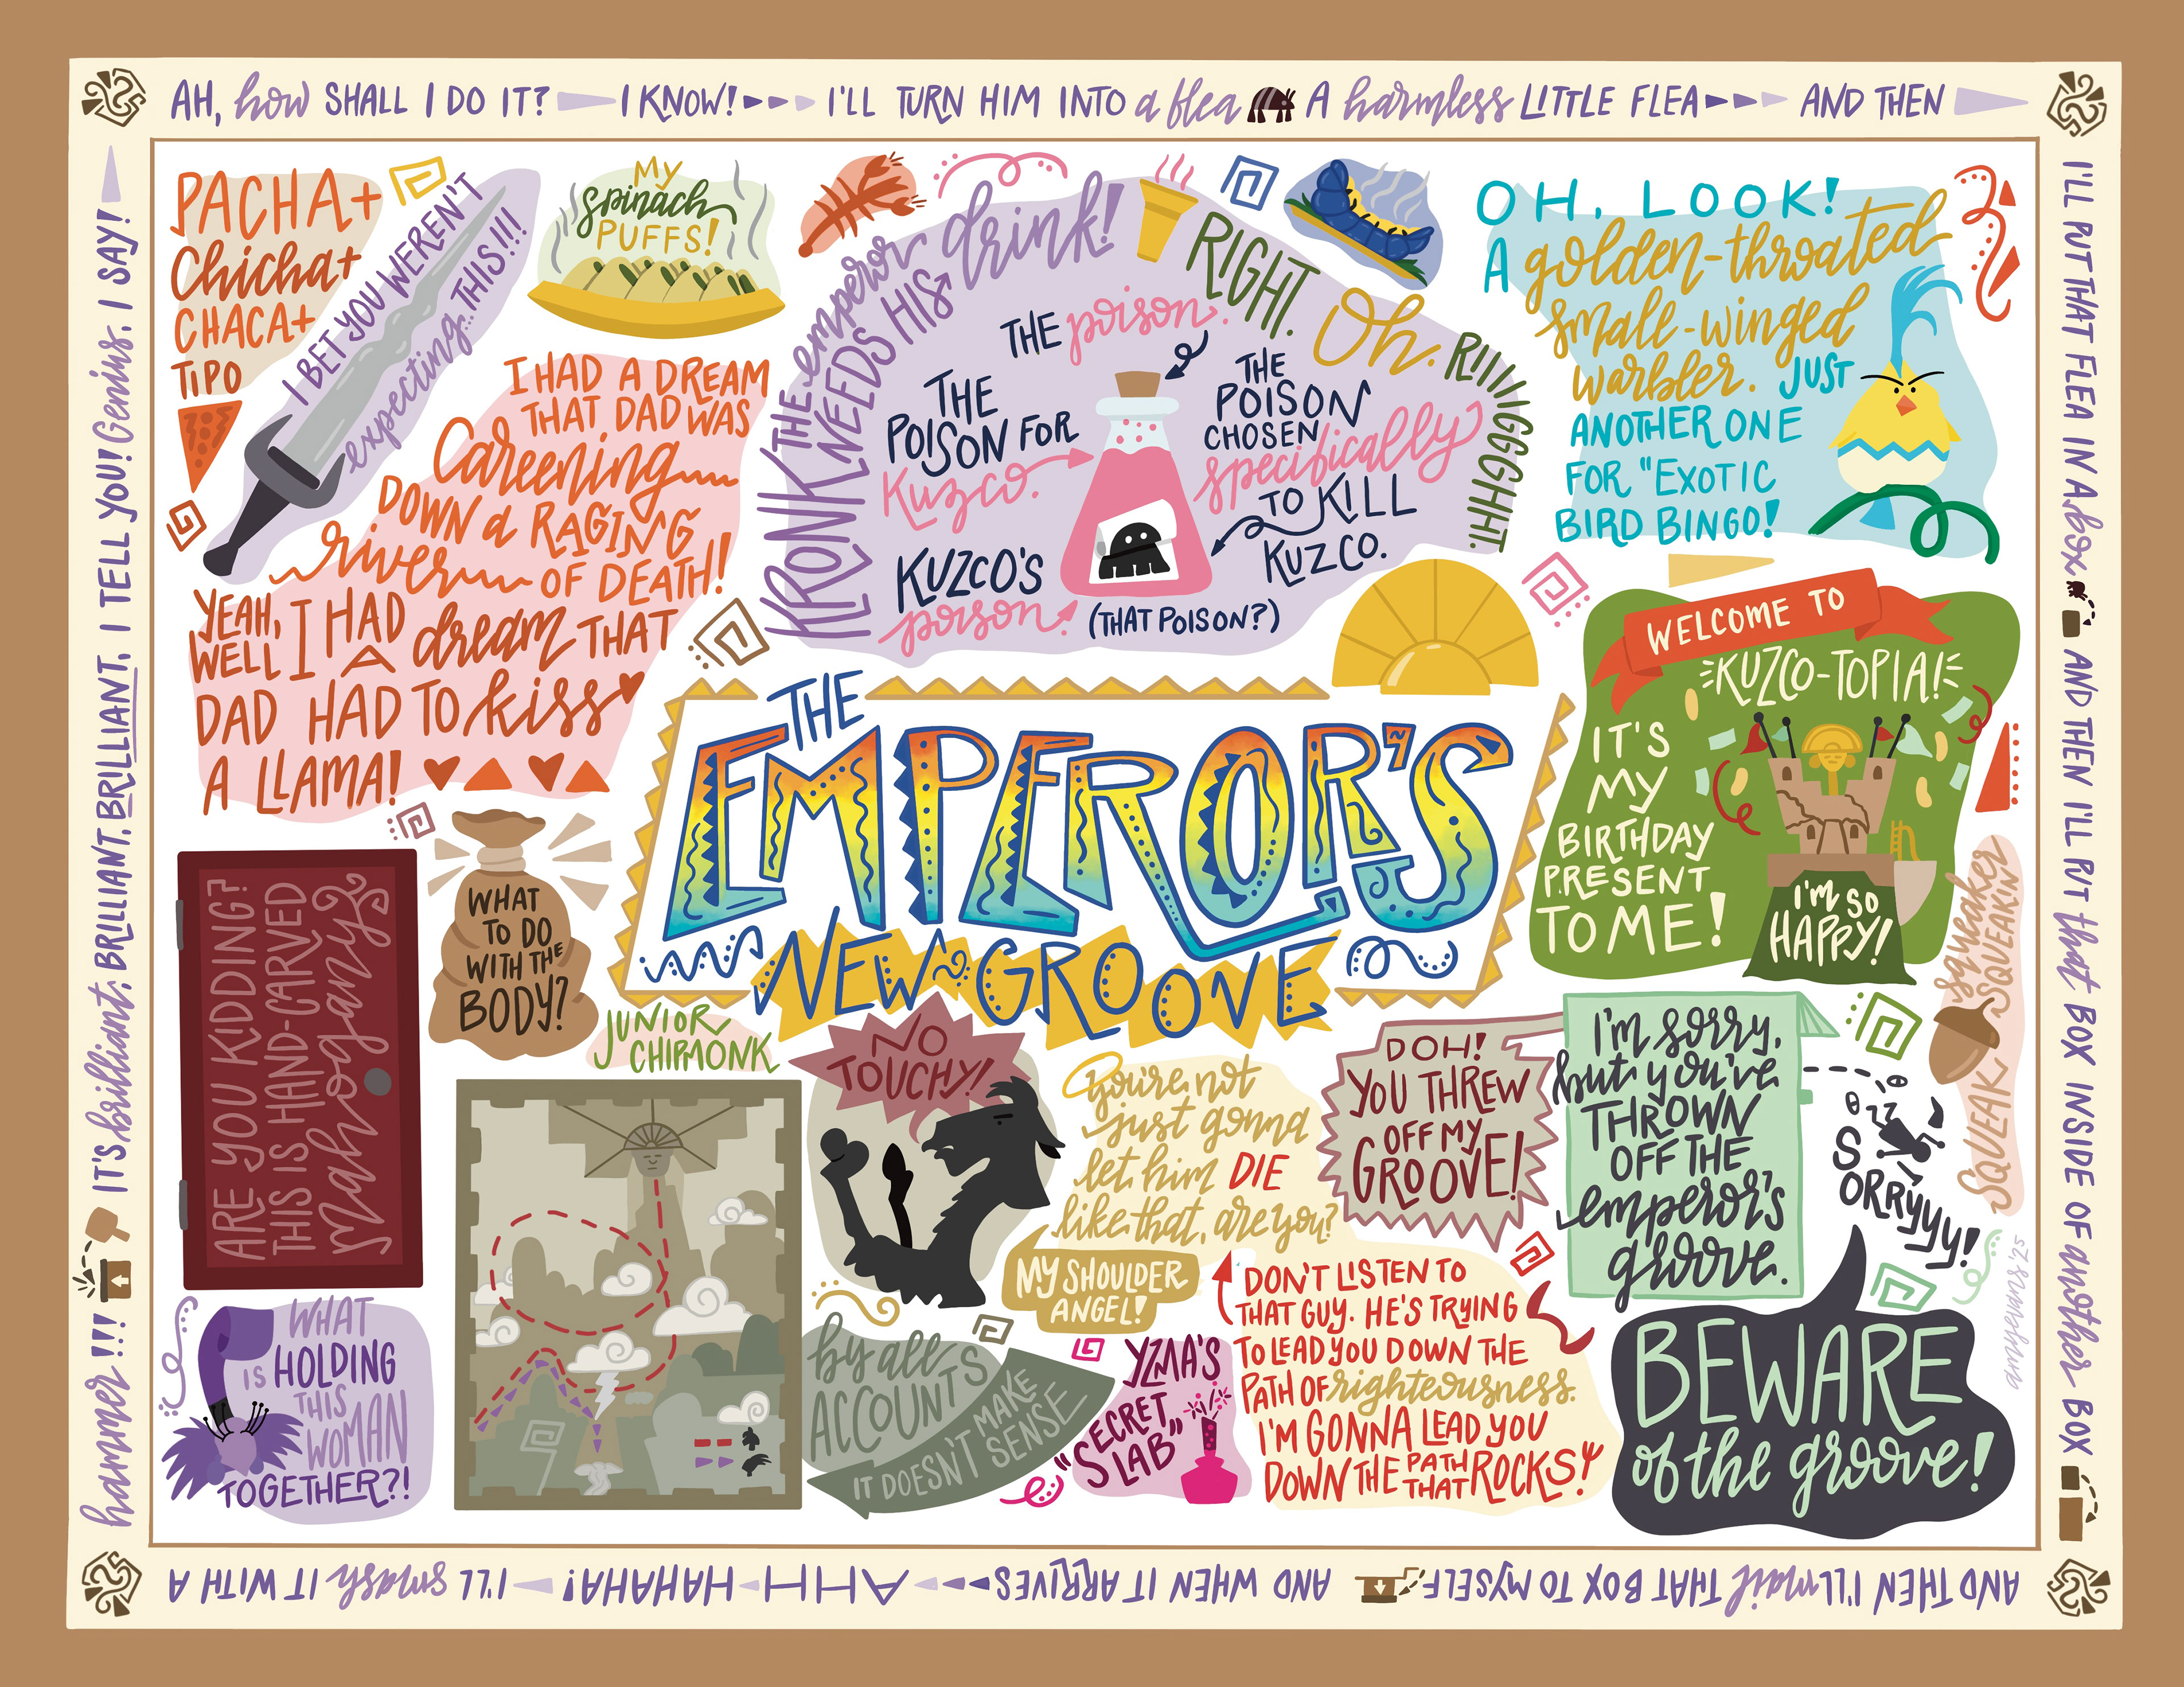 AH, how SHALL I DO IT? I KNOW! I'LL TURN HIM INTO a flea A harmless LITTLE FLEA AND THEN
I'LL PUT THAT FLEA IN A box AND THEN I'LL PUT that BOX INSIDE OF another BOX
AND THEN I'LL mail THAT BOX TO MYSELF AND WHEN IT ARRIVES AHH-HAHAHA! I'LL smash IT WITH A
hammer!!! IT'S brilliant, BRILLIANT, BRILLIANT, I TELL YOU! Genius, I SAY!
PACHA+
Chicha+
CHACA+
TIPO
I BET YOU WEREN'T
expecting... THIS!!!
MY
Spinach
PUFFS!
KRONK THE emperor
NEEDS HIS drink!
RIGHT.
THE poison.
Oh.
RIIIIGGGHHT.
THE
POISON FOR
Kuzco.
THE
POISON
CHOSEN
specifically
TO KILL
KUZCO.
KUZCO'S
poison.
(THAT POISON?)
OH, LOOK!
A golden-throated
small-winged
warbler. JUST
ANOTHER ONE
FOR "EXOTIC
BIRD BINGO!
I HAD A DREAM
THAT DAD WAS
Careening
DOWN a RAGING
river OF DEATH!
YEAH,
WELL I HAD
A dream THAT
DAD HAD TO kiss
A LLAMA!
THE
EMPEROR'S
NEW GROOVE
WELCOME TO
KUZCO-TOPIA!
IT'S
MY
BIRTHDAY
PRESENT
TO ME!
I'M SO
HAPPY!
ARE YOU KIDDING?
THIS IS HAND-CARVED
Mahogany
WHAT
TO DO
WITH THE
BODY?
JUNIOR
CHIPMONK
NO
TOUCHY!
you're not
just gonna
let him DIE
like that, are you?
MY SHOULDER
ANGEL!
DOH!
YOU THREW
OFF MY
GROOVE!
I'm sorry,
but you've
THROWN
OFF THE
emperor's
groove.
SORRYYY!
squeaker
SQUEAKIN'
SQUEAK
WHAT
IS HOLDING
THIS
WOMAN
TOGETHER?!
by all
ACCOUNTS
IT DOESN'T MAKE
SENSE
YZMA'S
"SECRET
LAB"
DON'T LISTEN TO
THAT GUY. HE'S TRYING
TO LEAD YOU DOWN THE
PATH OF righteousness.
I'M GONNA LEAD YOU
DOWN THE PATH THAT ROCKS!
BEWARE
of the groove!
amyevans '25